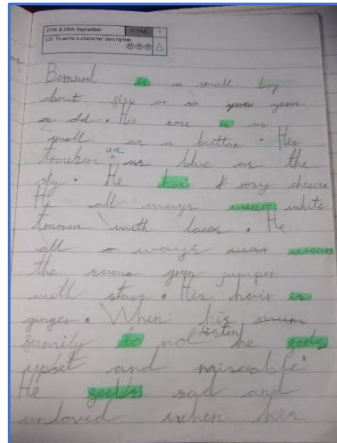 27th & 28th September
LO: To write a character description
Bernard is a small boy
about five or six years
old. His nose is as
small as a button. His
are
trousers as blue as the
sky. He has rosy cheeks
He all ways wears white
trainers with laces. He
all ways wears
the same green jumper
with stars. His hair is
ginger. When his
listen
family do not he feels
upset and miserable.
He feels sad and
unloved when his